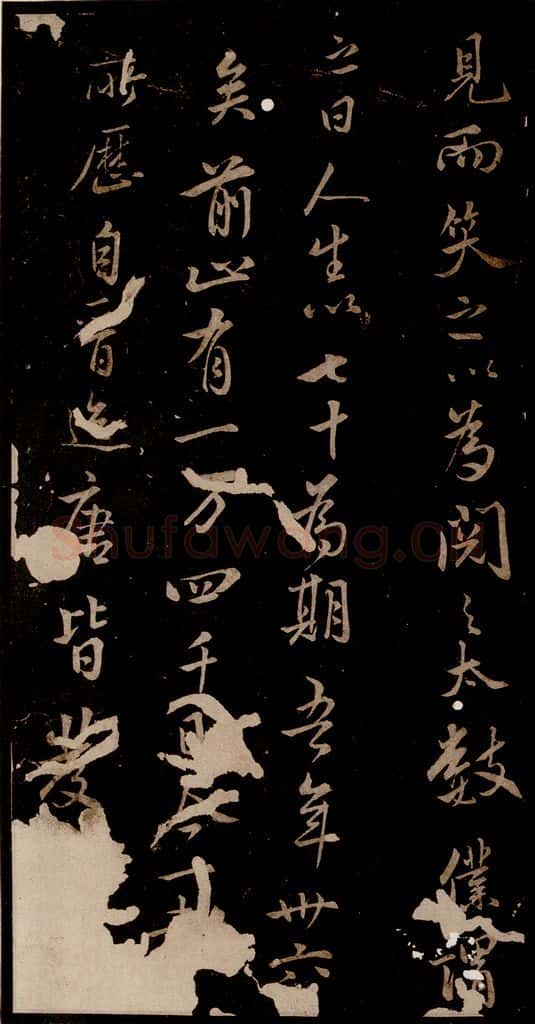 見而笑之以為閱之太數僕謂
之曰人生以七十為期吾年卅六
矣前止有一万四千日
所歷自晉迄唐皆
Shufawang.cn